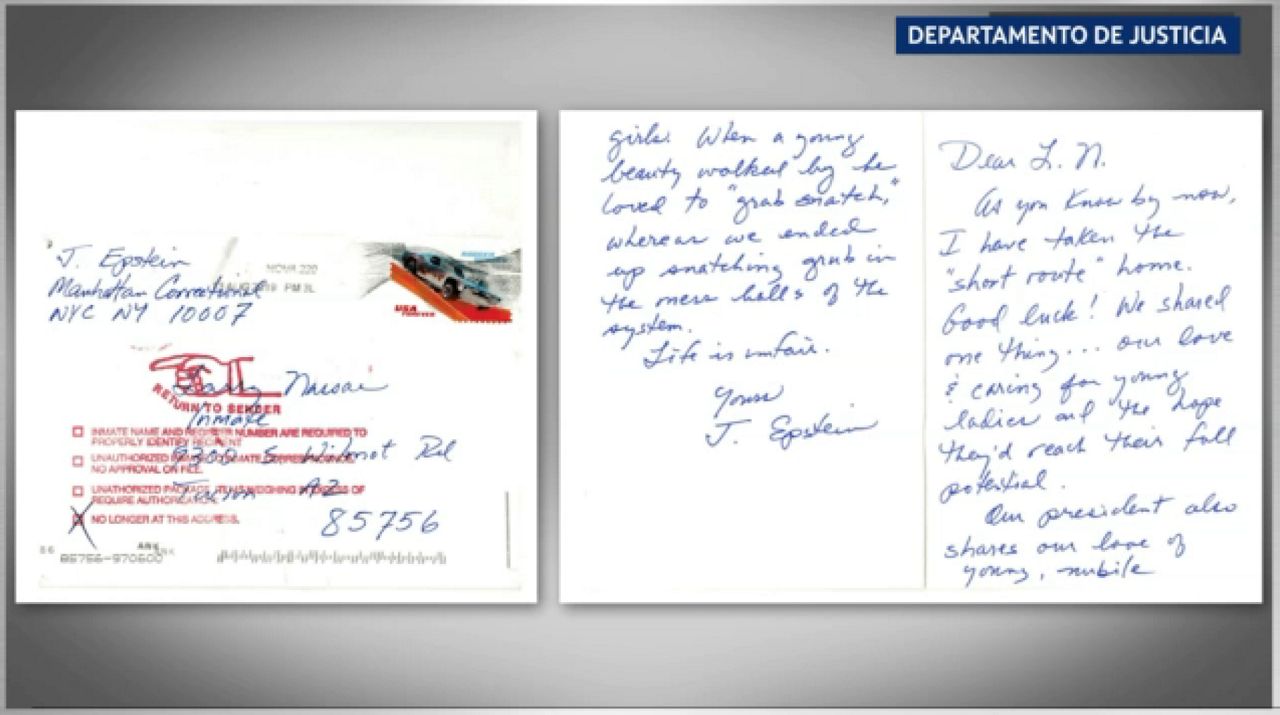 DEPARTAMENTO DE JUSTICIA
J. Epstein
Manhattan Correctional
NYC NY 10007
PM 3L
USA
FOREVER
Larry Nassar
RETURN TO SENDER
Inmate
INMATE NAME AND NUMBER ARE REQUIRED TO
PROPERLY IDENTIFY RECIPIENT
9300 S. Wilmot Rd
UNAUTHORIZED
NO APPROVAL ON FILE.
Tucson AZ
UNAUTHORIZED WEIGHING OF
REQUIRE AUTHORIZATION.
85756
NO LONGER AT THIS ADDRESS.
85756-970600
Dear L. N.
As you know by now,
I have taken the
"short route" home.
Good luck! We shared
one thing... our love
& caring for young
ladies and the hope
they'd reach their full
potential.
Our president also
shares our love of
young, nubile
girls. When a young
beauty walked by he
loved to "grab snatch,"
whereas we ended
up snatching grub in
the mess halls of the
system.
Life is unfair.
Yours
J. Epstein